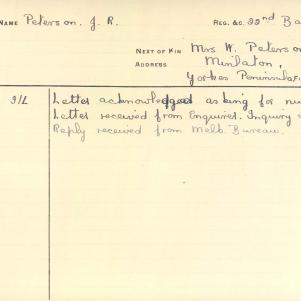 NAME Peterson. J. R. REG. &C. 22nd Ba
NEXT OF KIN Mrs W. Peterso
ADDRESS Minlaton,
Yorkes Peninsula
9/L Letter acknowledged asking for nu
Letter received from Enquirer. Inquiry
Reply received from Melb. Bureau.